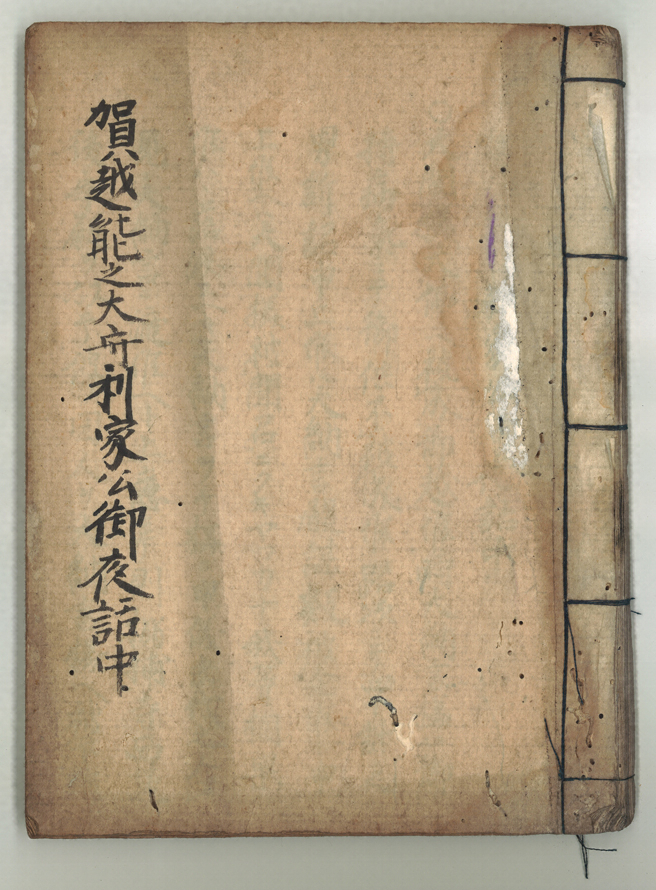 賀越能之大府利家公御夜話中